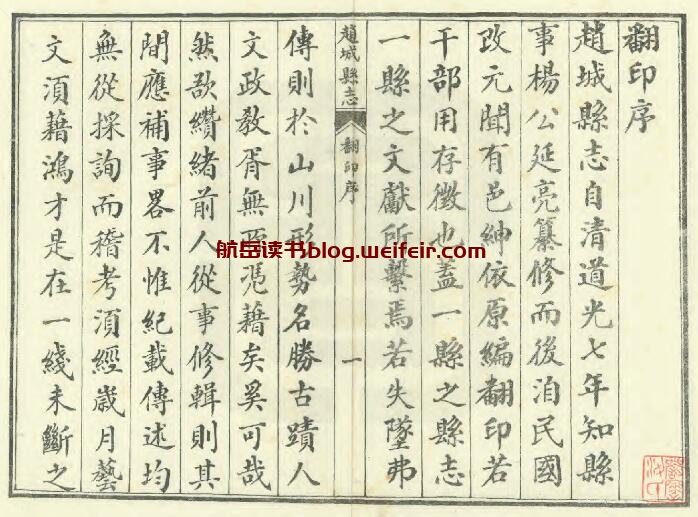 翻印序
趙城縣志自清道光七年知縣
事楊公延亮纂修而後洎民國
改元聞有邑紳依原編翻印若
干部用存徵也蓋一縣之縣志
一縣之文獻所繫焉若失墜弗
趙城縣志 翻印序 一
傳則於山川形勢名勝古蹟人
文政教胥無所憑藉矣奚可哉
然欲纘緒前人從事修輯則其
間應補事畧不惟紀載傳述均
無從採詢而稽考須經歲月藝
文須藉鴻才是在一綫未斷之
航岳读书blog.weifeir.com